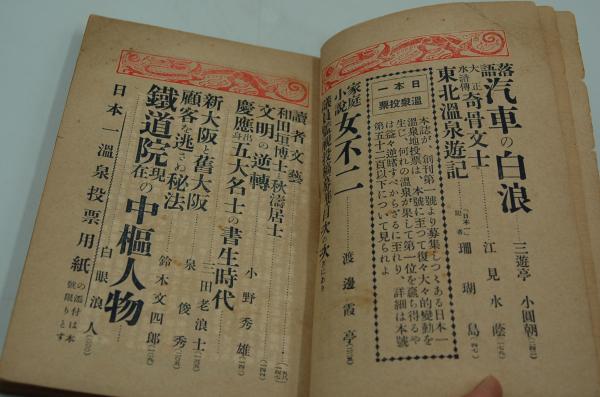 落語 汽車の白浪 三遊亭小圓朝
大正水滸傳 奇骨文士 江見水蔭
東北溫泉遊記 「日本一」記者 珊瑚島
日本一溫泉投票
本誌が、創刊第一號より募集しつゝある日本一
溫泉地投票は、本號に至つて復々大々的變動を
生じ、何れの溫泉が果して第一位を贏ち得るや
は益々逆睹すべからざるに至れり、詳細は本號
第五十二頁以下について見られよ
家庭小說 女不二 渡邊霞亭
讀者文藝
和田垣博士と秋濤居士
文明の逆轉 小野秀雄
慶應出身 五大名士の書生時代
新大阪と舊大阪 三田老浪士
顧客を逃さぬ秘法 泉俊秀
鐵道院現在の中樞人物 鈴木文四郎
白眼浪人
日本一溫泉投票用紙の添付は本號限りとす